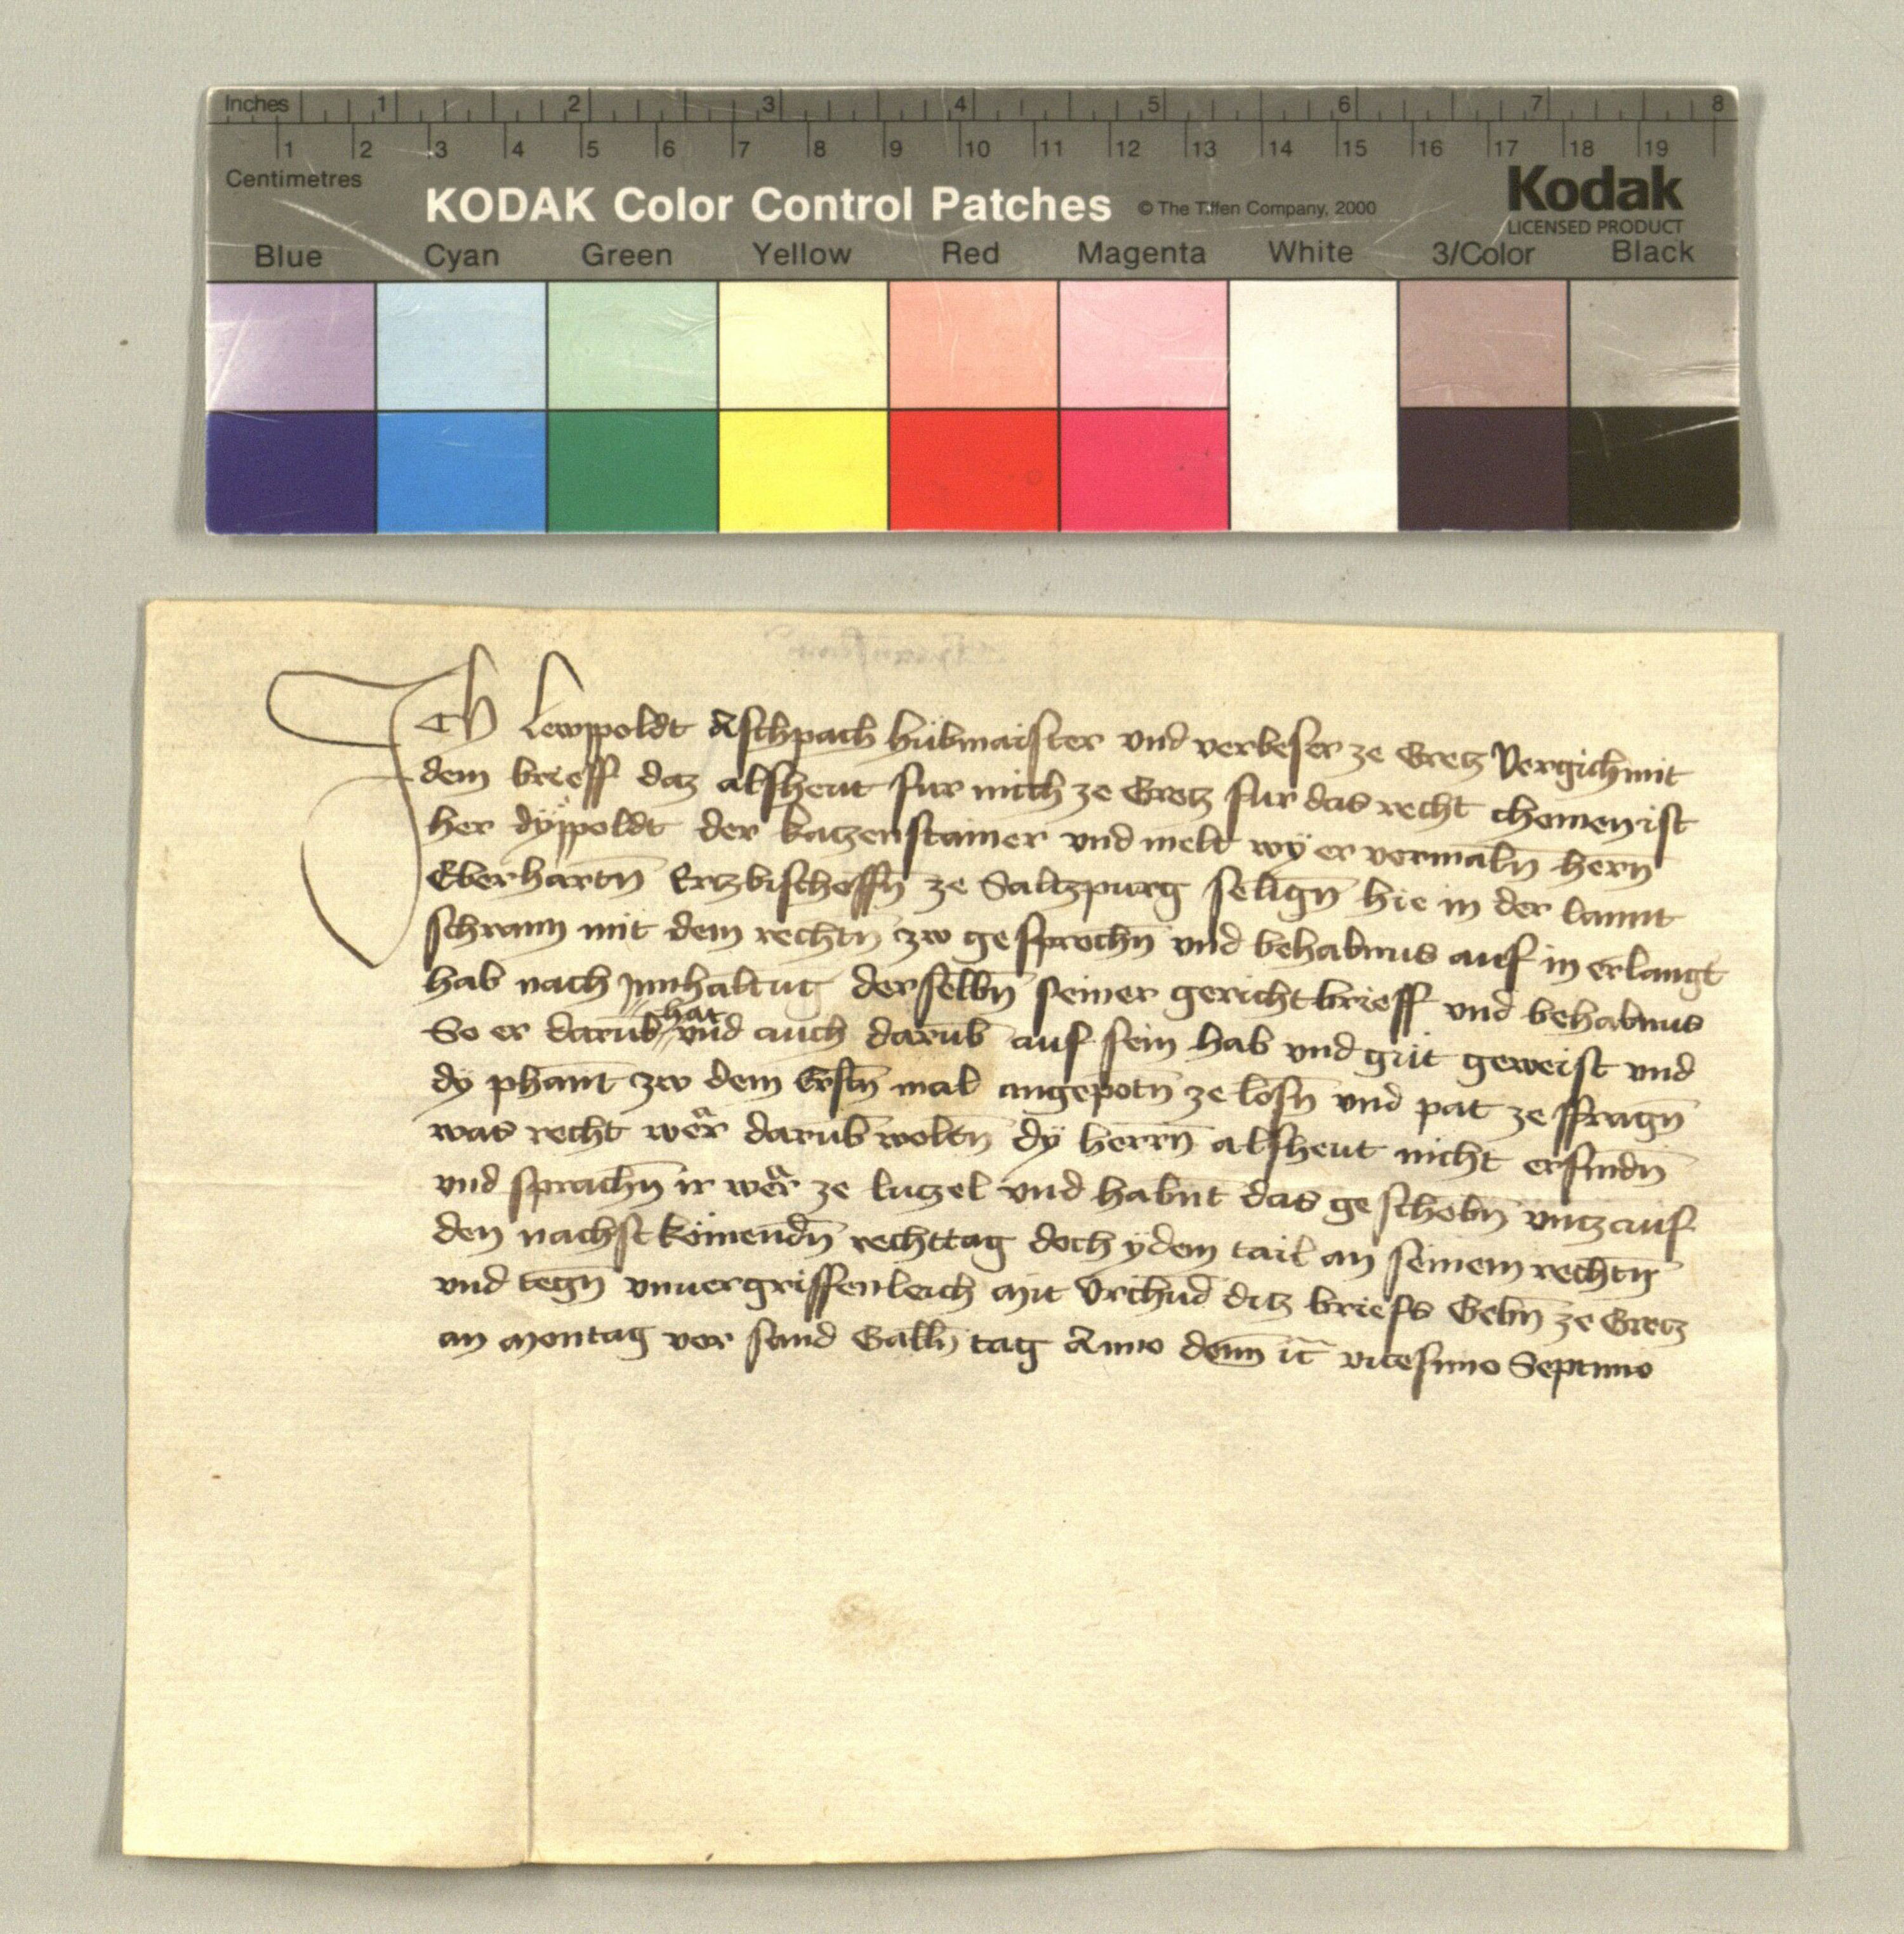 Inches 1 2 3 4 5 6 7 8
1 2 3 4 5 6 7 8 9 10 11 12 13 14 15 16 17 18 19
Centimetres
KODAK Color Control Patches © The Tiffen Company, 2000 Kodak
LICENSED PRODUCT
Blue Cyan Green Yellow Red Magenta White 3/Color Black
Ich Lewppoldt Aschpach hübmaister vnd verbeser ze Gretz Vergich mit
dem brieff daz alsheut fur mich ze Gretz fur das recht chomen ist
her dyppoldt der katzenstainer vnd melt wÿ er vormaln̄ hern̄
Eberhartn̄ Ertzbischoffn̄ ze Saltzpurg selign̄ hie in der lannt
schrann mit dem rechtn̄ zw gesprochn̄ vnd behabnus auf in erlangt
hab nach Innhaltūg derselbn̄ seiner gerichtbrieff vnd behabnus
So er darūb hat vnd auch darūb auf sein hab vnd gůt geweist vnd
dy phant zw dem Erstn̄ mal angepotn̄ ze losn̄ vnd pat ze ffragn̄
was recht wer darūb woltn̄ dÿ herrn̄ alsheut nicht erfindn̄
vnd sprachn̄ ir wer ze lutzel vnd habnt das geschobn̄ vntz auf
den nachstkömendn̄ rechttag doch ydem tail an seinem rechtn̄
vnd tegn̄ vnuergriffenleich mit Vrchūd ditz briefs Gebn̄ ze Gretz
an montag vor sand Galln̄ tag Anno dom̄ ic̄ vicesimo Septimo